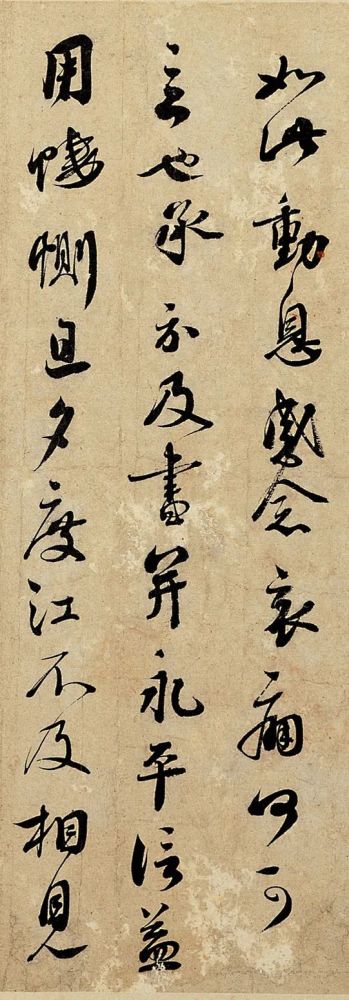 如此動息感念哀痛何可
言也承示及畫并永平信益
用悽惻旦夕度江不及相見